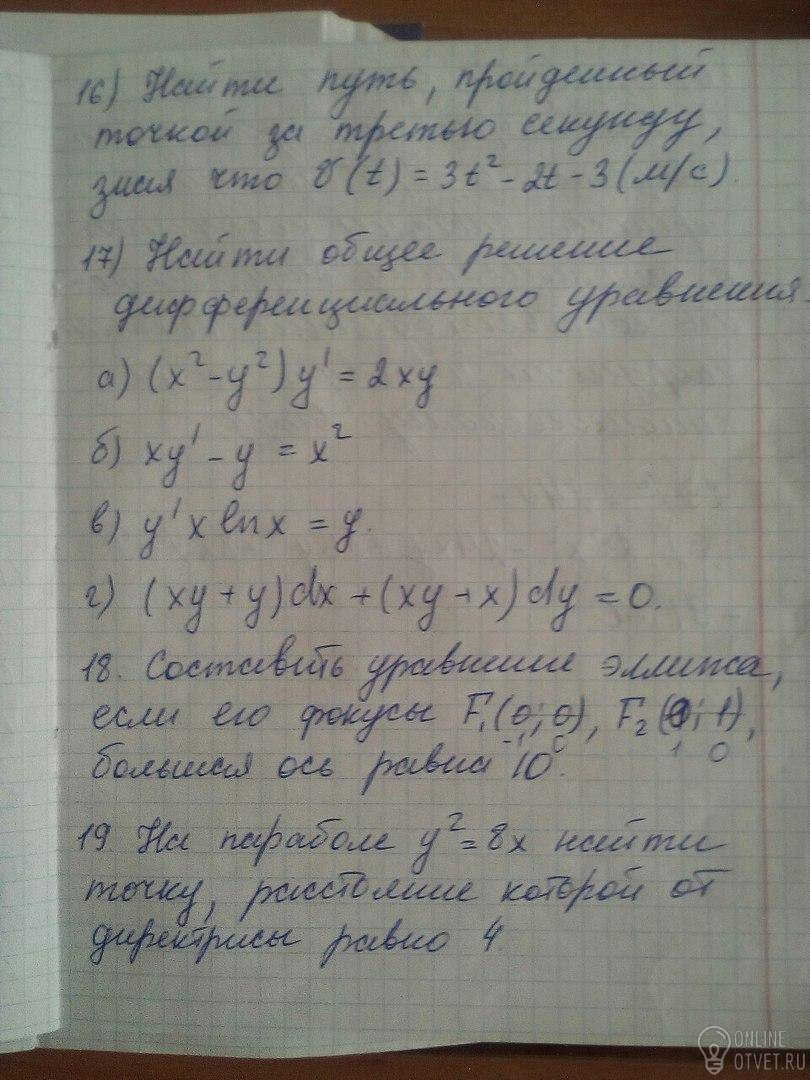 16) Найти путь, пройденный
точкой за третью секунду,
зная что v(t) = 3t² - 2t - 3 (м/с).
17) Найти общее решение
дифференциального уравнения.
а) (x² - y²) y' = 2xy
б) xy' - y = x²
в) y' x ln x = y.
г) (xy + y)dx + (xy + x)dy = 0.
18. Составить уравнение эллипса,
если его фокусы F₁(0; 0), F₂(0; 1),
-1 0 1 0
большая ось равна 10.
19. На параболе y² = 8x найти
точку, расстояние которой от
директрисы равно 4
ONLINE
OTVET.RU